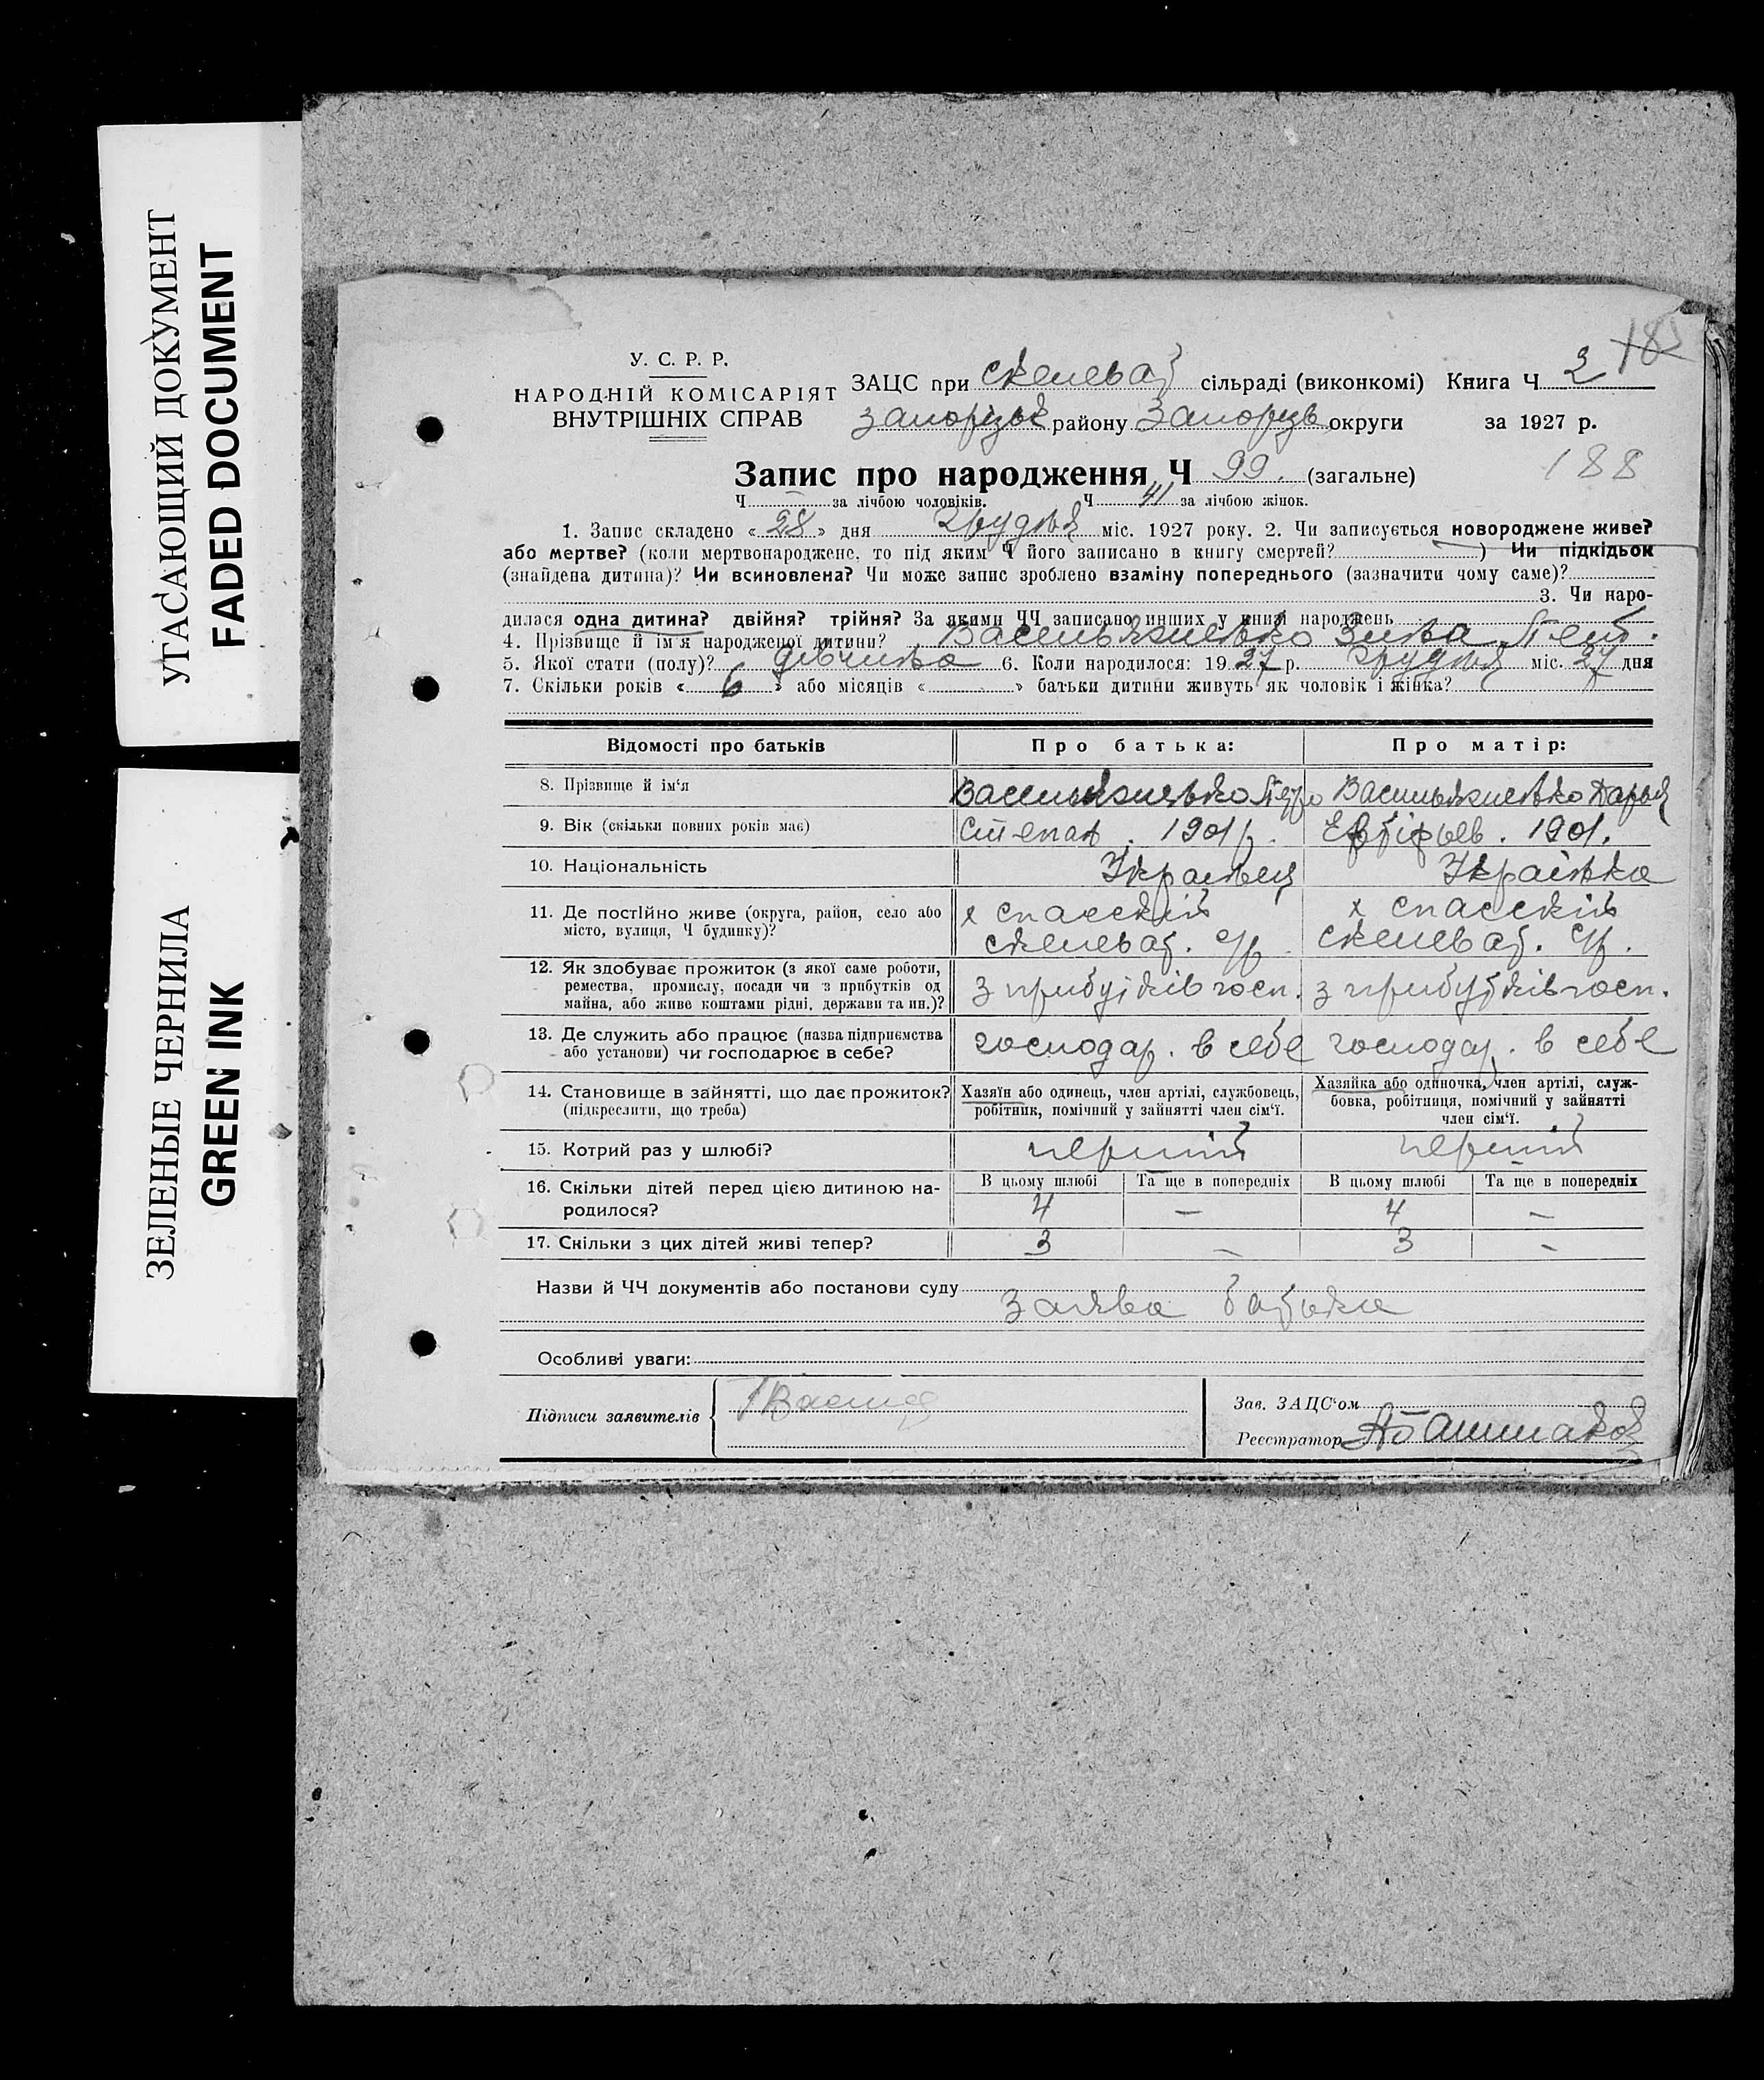 УГАСАЮЩИЙ ДОКУМЕНТ
FADED DOCUMENT
ЗЕЛЕНЫЕ ЧЕРНИЛА
GREEN INK
У. С. Р. Р.
НАРОДНІЙ КОМІСАРІЯТ
ВНУТРІШНІХ СПРАВ
ЗАЦС при Скелеват сільраді (виконкомі) Книга Ч 2
запорізьк району Запорізь округи за 1927 р.
188
Запис про народження Ч 99. (загальне)
Ч — за лічбою чоловіків. Ч 41 за лічбою жінок.
1. Запис складено « 28 » дня Грудня міс. 1927 року. 2. Чи записується новороджене живе?
або мертве? (коли мертвонароджене, то під яким Ч його записано в книгу смертей? ) Чи підкідьок
(знайдена дитина)? Чи всиновлена? Чи може запис зроблено взаміну попереднього (зазначити чому саме)?
3. Чи наро-
дилася одна дитина? двійня? трійня? За якими ЧЧ записано инших у книзі народжень
4. Прізвище й ім'я народженої дитини? Зина Пет.
5. Якої стати (полу)? дівчина 6. Коли народилося: 1927 р. Грудня міс. 27 дня
7. Скільки років « 6 » або місяців « » батьки дитини живуть як чоловік і жінка?
Відомості про батьків
Про батька:
Про матір:
8. Прізвище й ім'я
Петро
Дарья
9. Вік (скільки повних років має)
Степан. 1901 р.
1901.
10. Національність
Украінець
Украінка
11. Де постійно живе (округа, район, село або
місто, вулиця, Ч будинку)?
х спасский
Скелеват. с/р.
х спасский
Скелеват. с/р.
12. Як здобуває прожиток (з якої саме роботи,
ремества, промислу, посади чи з прибутків од
майна, або живе коштами рідні, держави та ин.)?
з прибутків госп.
з прибутків госп.
13. Де служить або працює (назва підприємства
або установи) чи господарює в себе?
господар. в себе
господар. в себе
14. Становище в зайнятті, що дає прожиток?
(підкреслити, що треба)
Хазяїн або одинець, член артілі, службовець,
робітник, помічний у зайнятті член сім'ї.
Хазяйка або одиночка, член артілі, служ-
бовка, робітниця, помічний у зайнятті
член сім'ї.
15. Котрий раз у шлюбі?
перший
перший
16. Скільки дітей перед цією дитиною на-
родилося?
В цьому шлюбі
Та ще в попередніх
В цьому шлюбі
Та ще в попередніх
4 — 4 —
17. Скільки з цих дітей живі тепер?
3 — 3 —
Назви й ЧЧ документів або постанови суду
заява батька
Особливі уваги:
Підписи заявителів
Зав. ЗАЦС'ом
Реєстратор